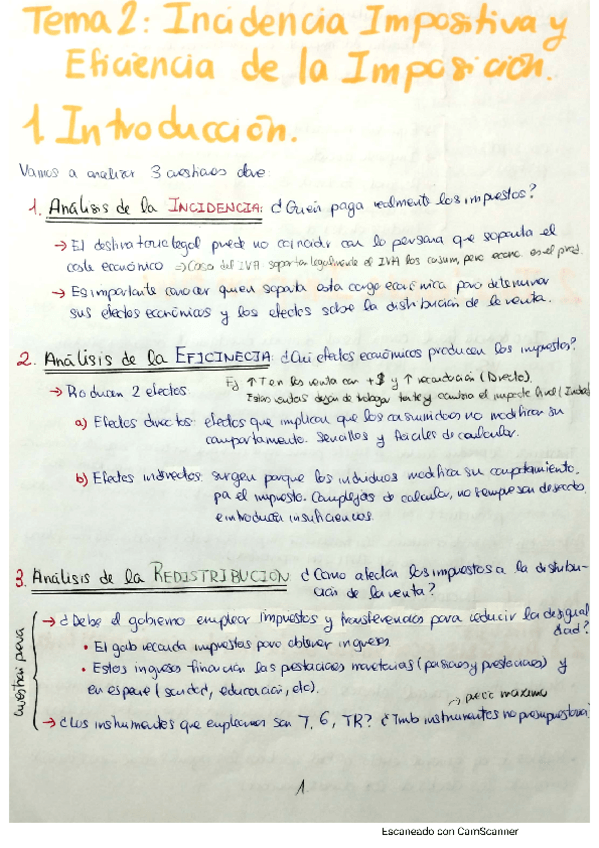 Tema 2: Incidencia Impositiva y
Eficiencia de la Imposición.
1. Introducción.
Vamos a analizar 3 cuestiones clave:
1. Análisis de la INCIDENCIA: ¿Quién paga realmente los impuestos?
→ El destinatario legal puede no coincidir con la persona que soporta el
coste económico ⇒ Caso del IVA: soportan legalmente el IVA los consum, pero econc. es el prod.
→ Es importante conocer quien soporta esta carga económica para determinar
sus efectos económicos y los efectos sobre la distribución de la renta.
2. Análisis de la EFICINECIA: ¿Qué efectos económicos producen los impuestos?
→ Producen 2 efectos
Ej ↑ T en las renta con +$ y ↑ recaudación (Directo).
Estas rentas dejan de trabajar tanto y cambia el impacto final
a) Efectos directos: efectos que implican que los consumidores no modifican su
comportamiento. Sencillos y fáciles de calcular.
b) Efectos indirectos: surgen porque los individuos modifican su comportamiento.
pa el impuesto. Complejos de calcular, no siempre son
e introducen
3. Análisis de la REDISTRIBUCION: ¿Como afectan los impuestos a la distribu-
ción de la renta?
→ ¿Debe el gobierno emplear impuestos y transferencias para reducir la desigual
dad?
• El gob recauda impuestos para obtener ingresos
• Estos ingresos financian las prestaciones monetarias (pensiones y prestaciones) y
en especie (sanidad, educación, etc).
→ precio máximo
→ ¿Los instrumentos que empleamos son T, G, TR? ¿Tmb instrumentos no
1
Escaneado con CamScanner